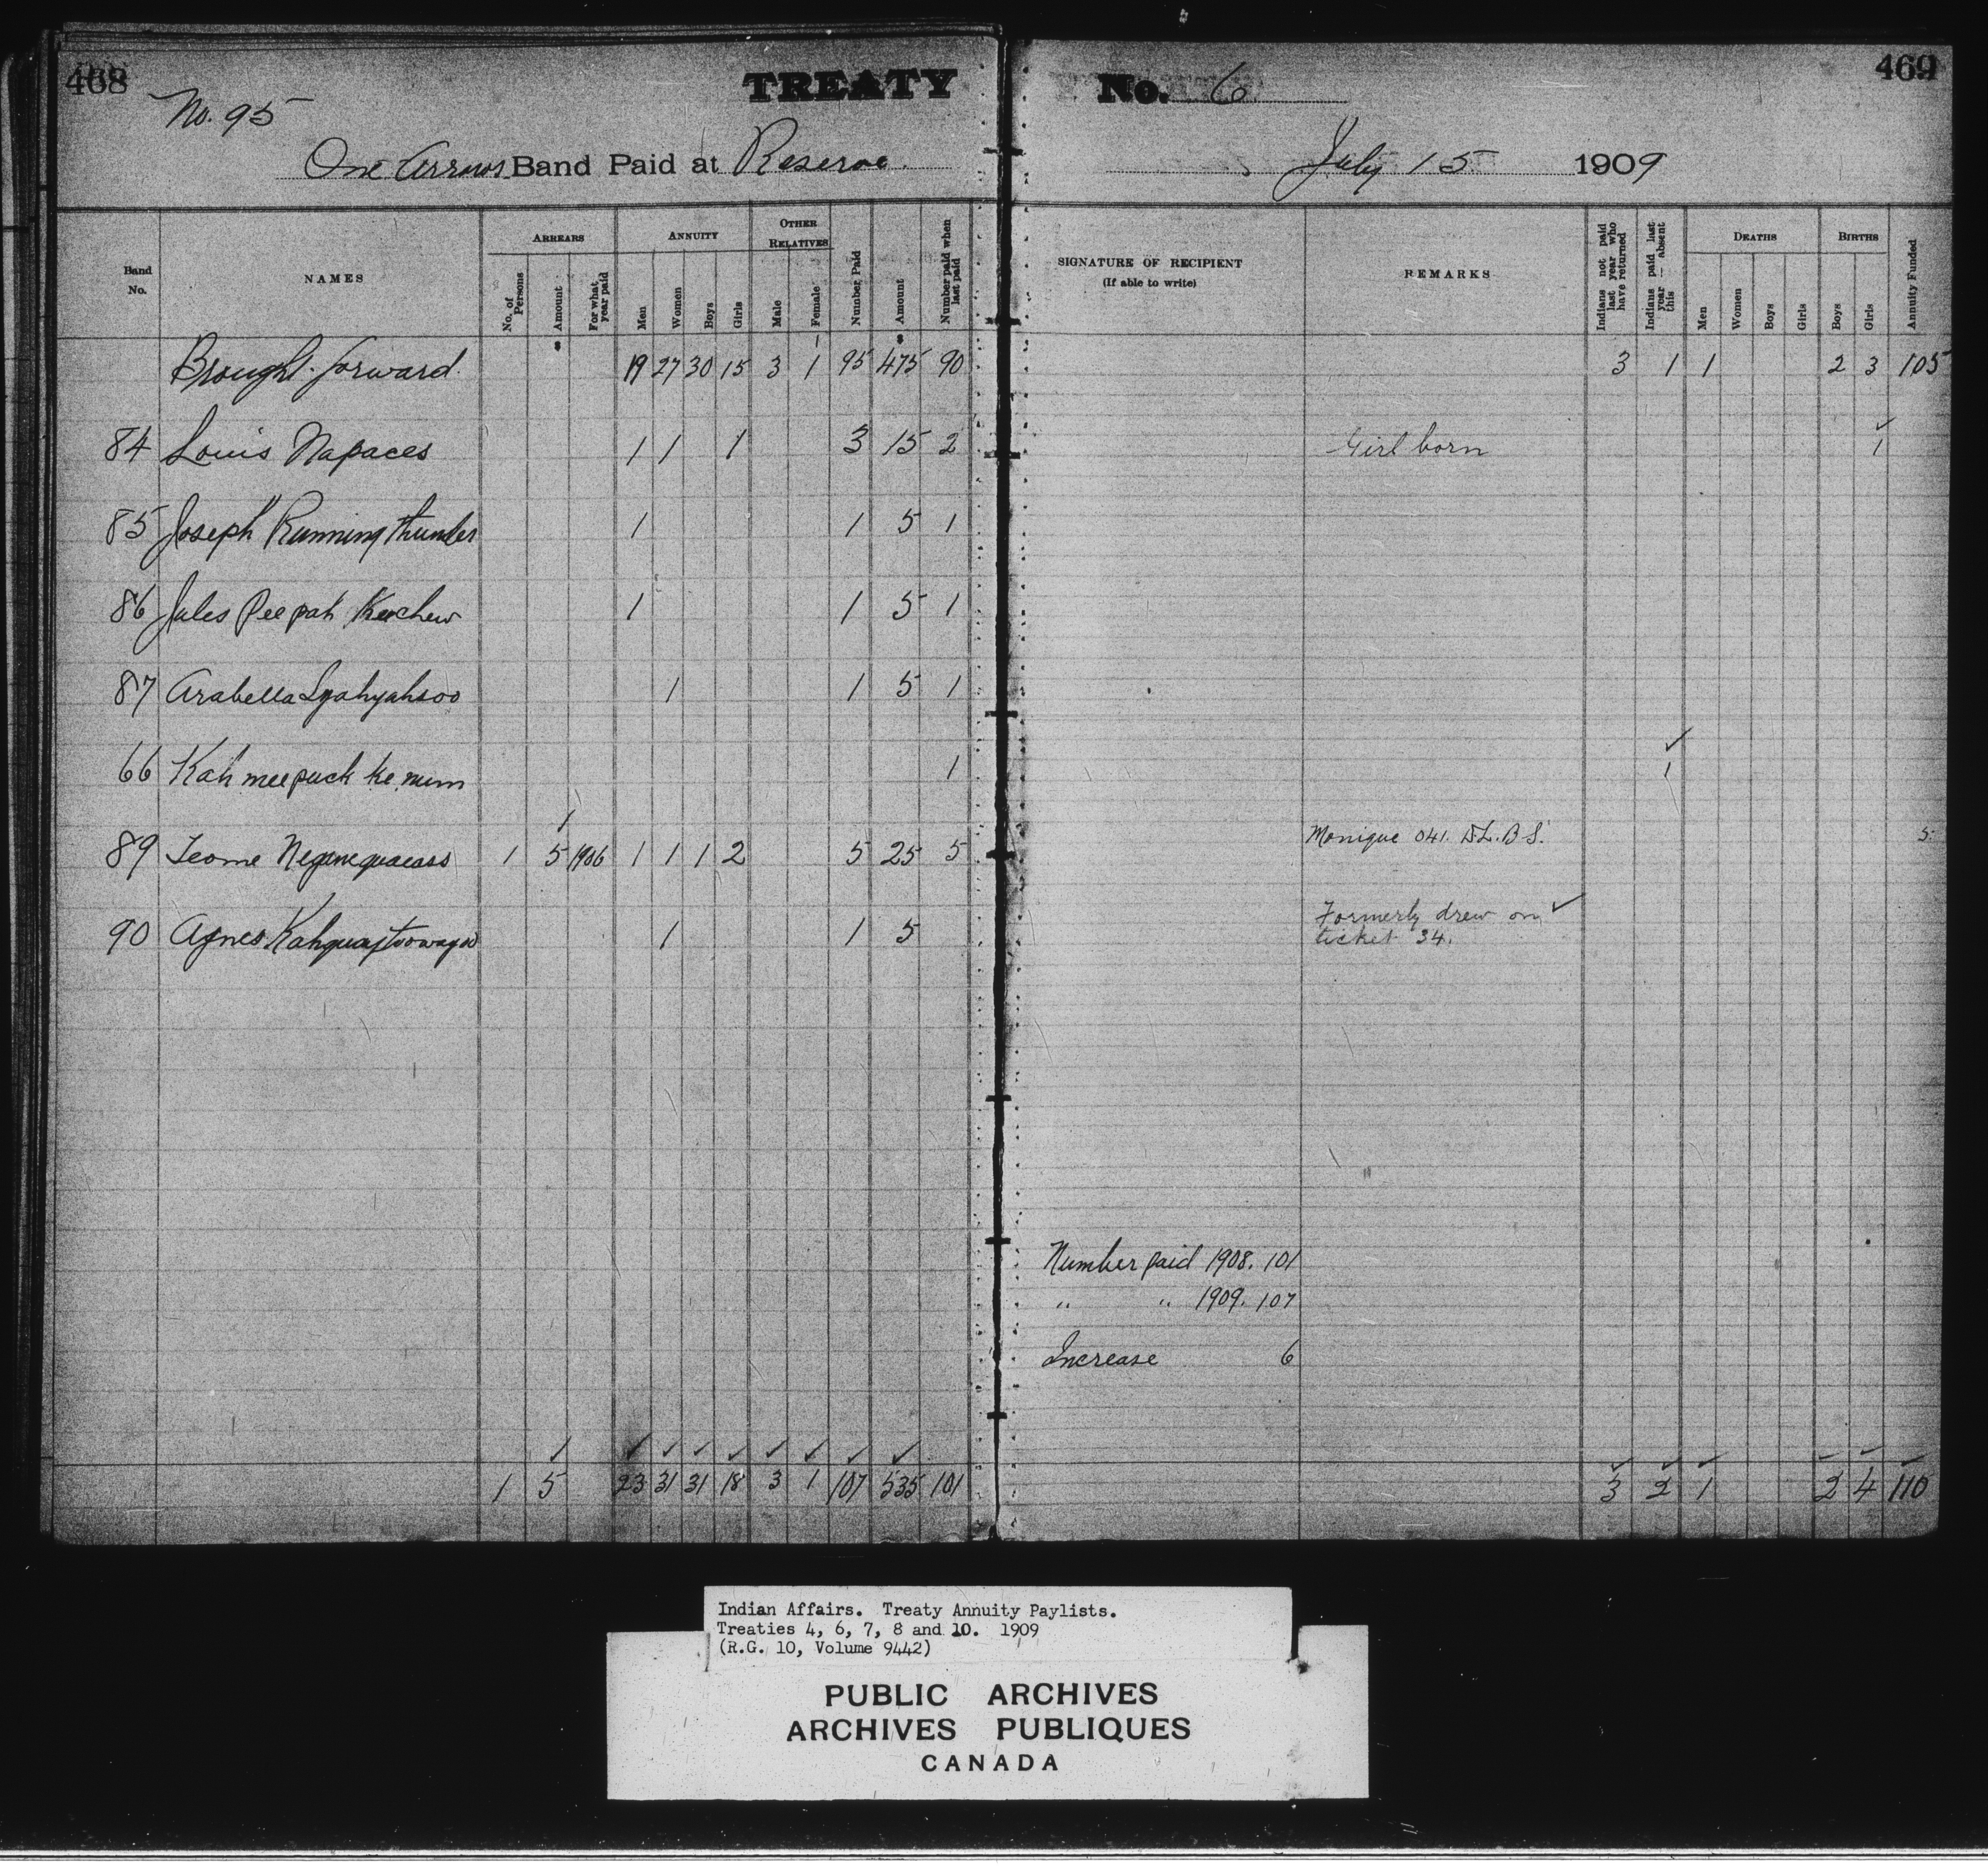 468
TREATY
No. 6
469
No. 95
One Arrows Band Paid at Reserve
July 15 1909
Band No.
NAMES
ARREARS
No. of Persons
Amount
For what year paid
ANNUITY
Men
Women
Boys
Girls
OTHER RELATIVES
Male
Female
Number Paid
Amount
Number paid when last paid
SIGNATURE OF RECIPIENT
(If able to write)
REMARKS
Indians not paid last year who have returned
Indians paid last year — absent this
DEATHS
Men
Women
Boys
Girls
BIRTHS
Boys
Girls
Annuity Funded
Brought forward 19 27 30 15 3 1 95 475 90 3 1 1 2 3 105
84 Louis Napaces 1 1 1 3 15 2 Girl born 1
85 Joseph Running thunder 1 1 5 1
86 Jules Pee pah Keechew 1 1 5 1
87 Arabella 1 1 5 1
66 Kah mee puck ke num 1 1
89 1 5 1906 1 1 1 2 5 25 5 Monique 041. D.L.B.S. 5
90 Agnes 1 1 5 Formerly drew on
ticket 34.
Number paid 1908. 101
" " 1909. 107
Increase 6
1 5 23 31 31 18 3 1 107 535 101 3 2 1 2 4 110
Indian Affairs. Treaty Annuity Paylists.
Treaties 4, 6, 7, 8 and 10. 1909
(R.G. 10, Volume 9442)
PUBLIC ARCHIVES
ARCHIVES PUBLIQUES
CANADA